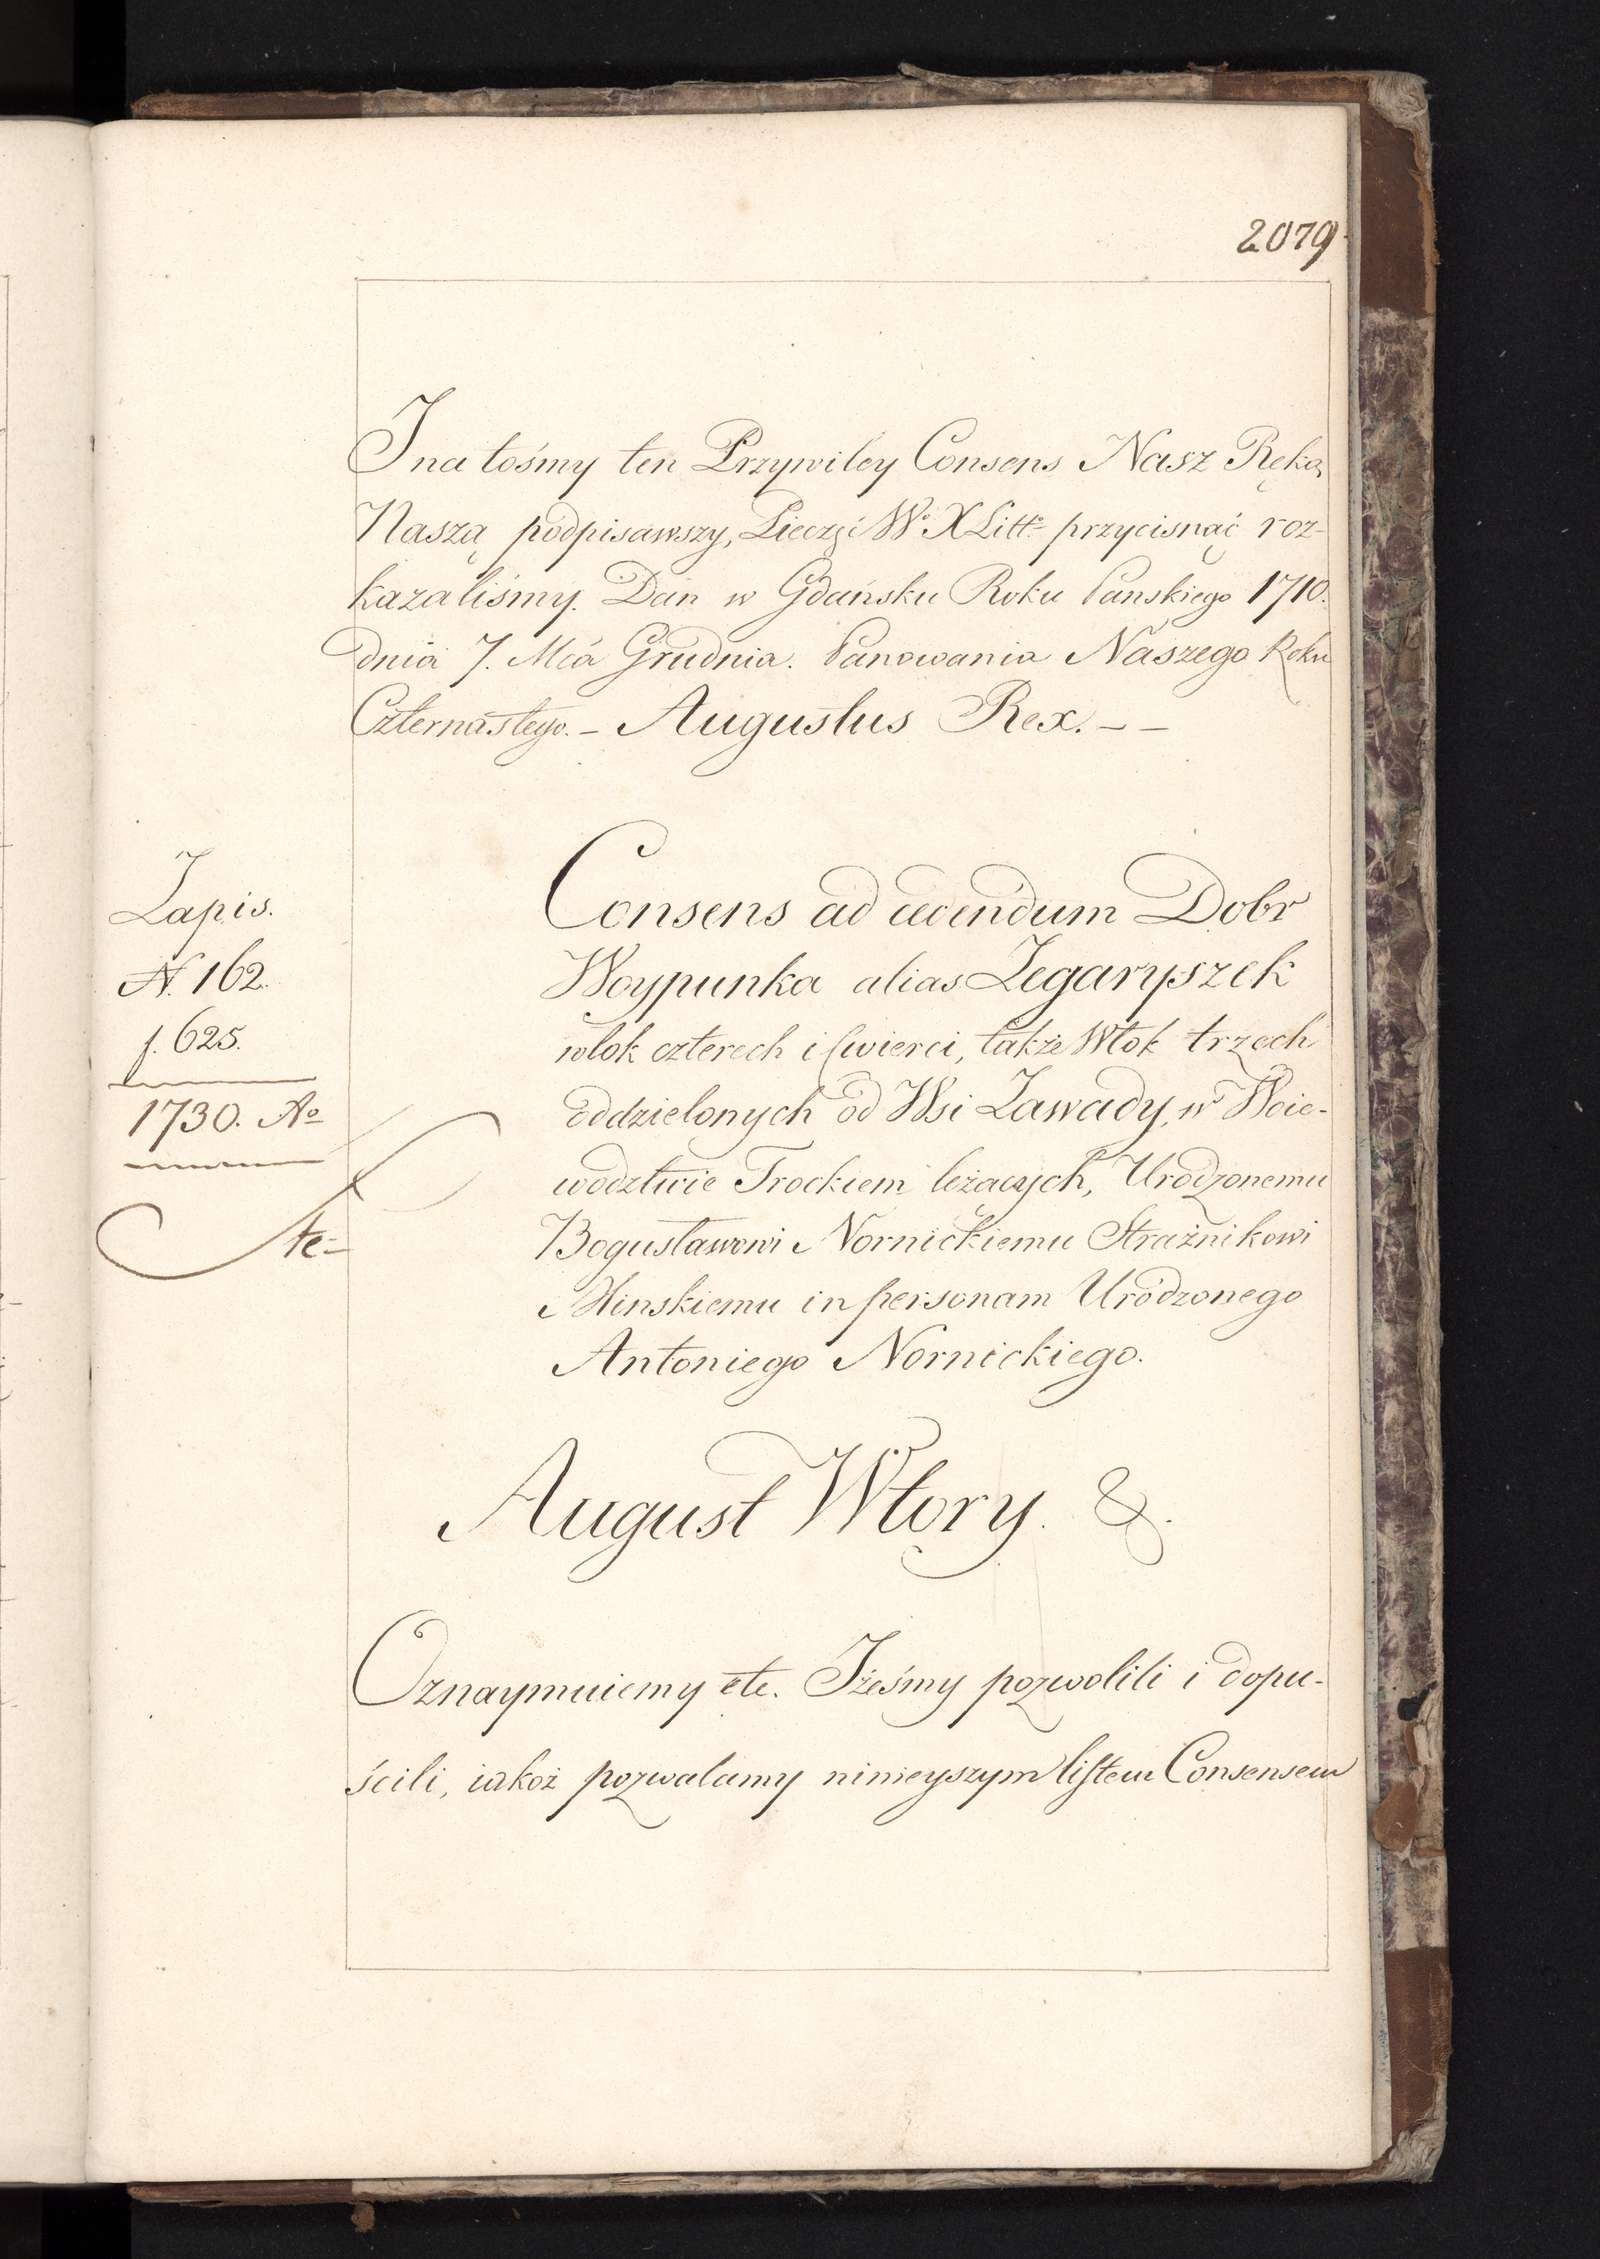 2079
I na tośmy ten Przywiley Consens Nasz Ręką
Naszą podpisawszy, Pieczęć W° X Litt° przycisnąć roz-
kazaliśmy. Dan w Gdańsku Roku Panskiego 1710.
dnia 7. Mca Grudnia. Panowania Naszego Roku
Czternastego. – Augustus Rex. – –
Zapis.
N. 162.
f. 625.
1730. A°
te=
Consens ad cedendum Dobr
Woypunka alias Zegaryszek
wlok czterech i ćwierci, także Włok trzech
oddzielonych od Wsi Zawady, w Woie-
wodztwie Trockiem leżących, Urodzonemu
Bogusławowi Nornickiemu Strażnikowi
Minskiemu in personam Uródzonego
Antoniego Nornickiego.
August Wtory. &.
Oznaymuiemy etc. Iżeśmy pozwolili i dopu-
ścili, iakoż pozwalamy ninieyszym listem Consensem